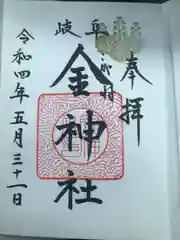 奉拝
岐阜
金神社
令和四年五月三十一日